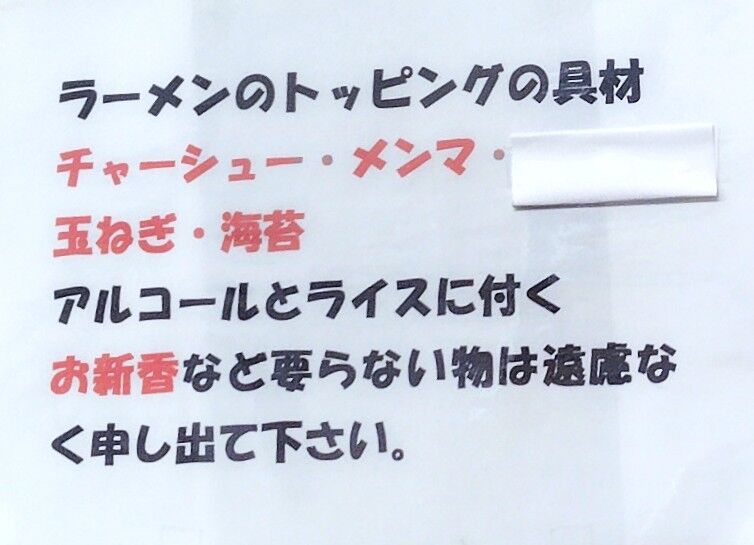 ラーメンのトッピングの具材
チャーシュー・メンマ・
玉ねぎ・海苔
アルコールとライスに付く
お新香など要らない物は遠慮な
く申し出て下さい。